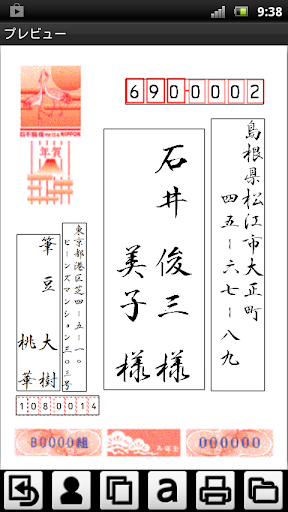 9:38
プレビュー
6900002
日本郵便 NIPPON
年賀
島根県松江市大正町
四五ー六七ー八九
石井 俊三 様
美子 様
東京都港区芝四ー五ー一〇
ビーンズマンション三〇三号
筆豆 大樹
桃華
1080014
B0000組
お年玉
000000
a